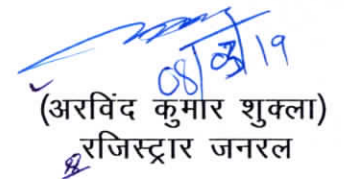 08/03/19
(अरविंद कुमार शुक्ला)
रजिस्ट्रार जनरल